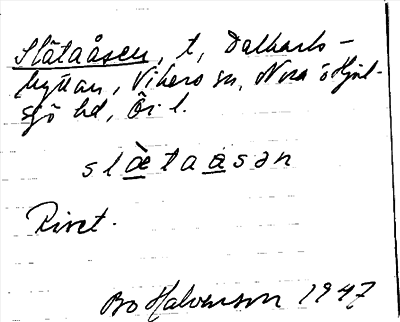 Slätaåsen, t, Dalkarls-
hyttan, Vikers sn, Nora o Hjul-
sjö hd, Ör l.
slæ̀taåsən
Rivet.
Bo Halvarson 1947